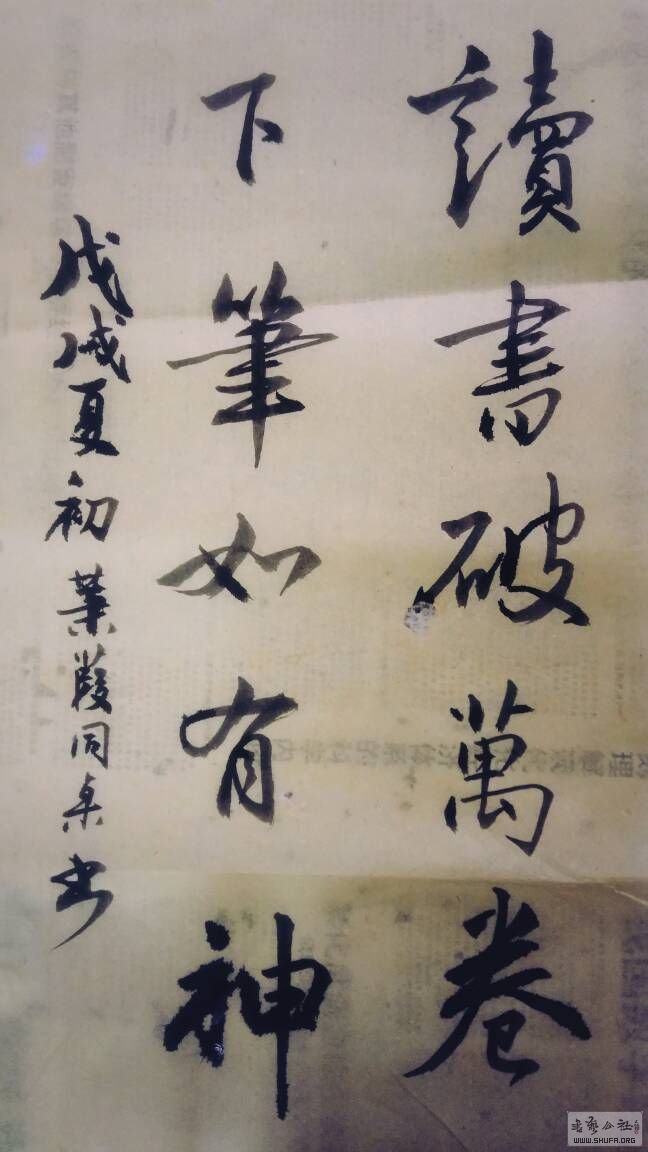 讀書破萬卷
下筆如有神
戊戌夏初葉葭同桌书
書藝公社
WWW.SHUFA.ORG